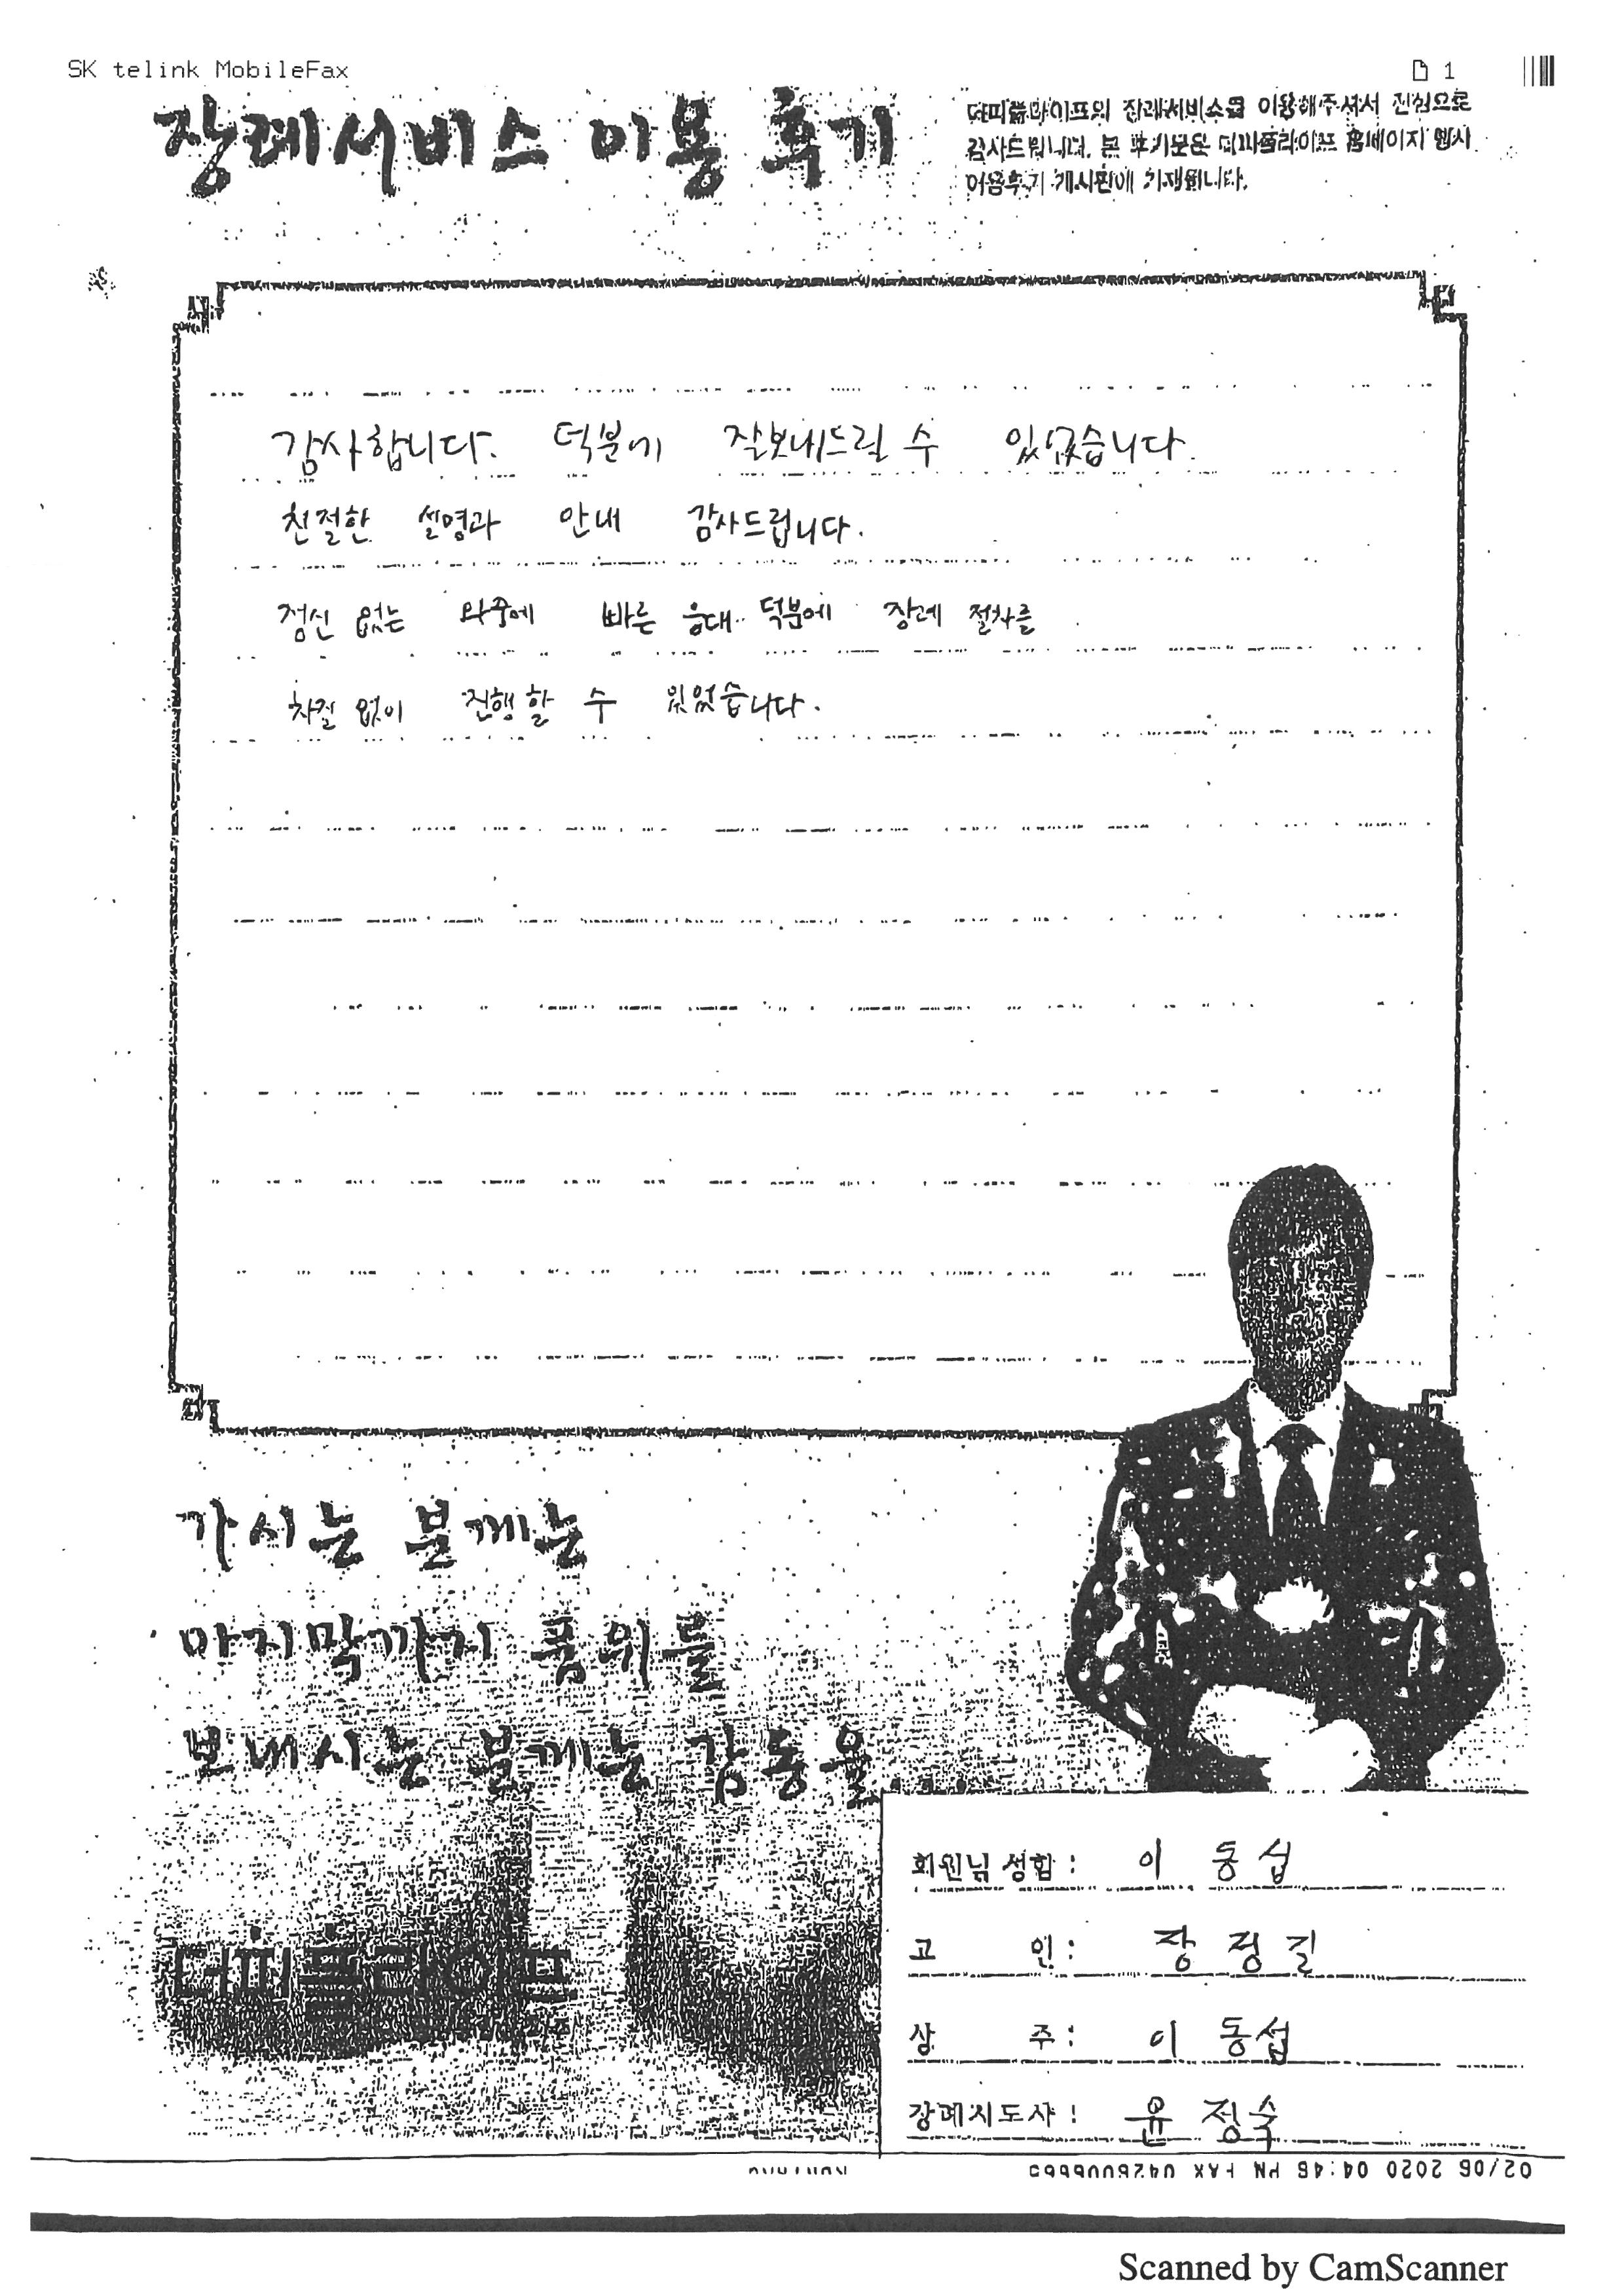 SK telink MobileFax
1
장례서비스 이용 후기
더피플라이프의 장례서비스를 이용해주셔서 진심으로
감사드립니다. 본 후기문은 더피플라이프 홈페이지 행사
이용후기 게시판에 기재됩니다.
감사합니다. 덕분에 잘보내드릴 수 있었습니다.
친절한 설명과 안내 감사드립니다.
정신 없는 와중에 빠른 응대 덕분에 장례 절차를
차질 없이 진행할 수 있었습니다.
가시는 분께는
마지막까지 품위를
보내시는 분께는 감동을
더피플라이프
회원님 성함 : 이 동 섭
고 인 : 장 정 길
상 주 : 이 동 섭
장례지도사 : 윤 정숙
02/06 2020 04:46 PM FAX
Scanned by CamScanner